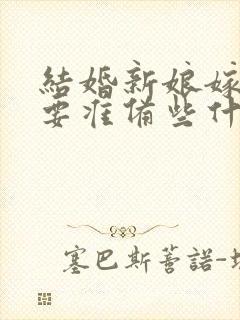 結婚新娘嫁
要准備些什
塞巴斯蒂諾-